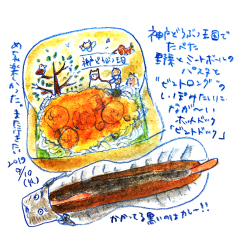 神戸どうぶつ王国で
たべた
野菜とミートボールの
パスタと
"ビントロング"の
しっぽみたいに
ながーい
ホットドック
「ビントドック」
めちゃ楽しかった。また行きたい
2019
9/10
(火)
神戸どうぶつ王国
かかってる黒いのはカレー!!